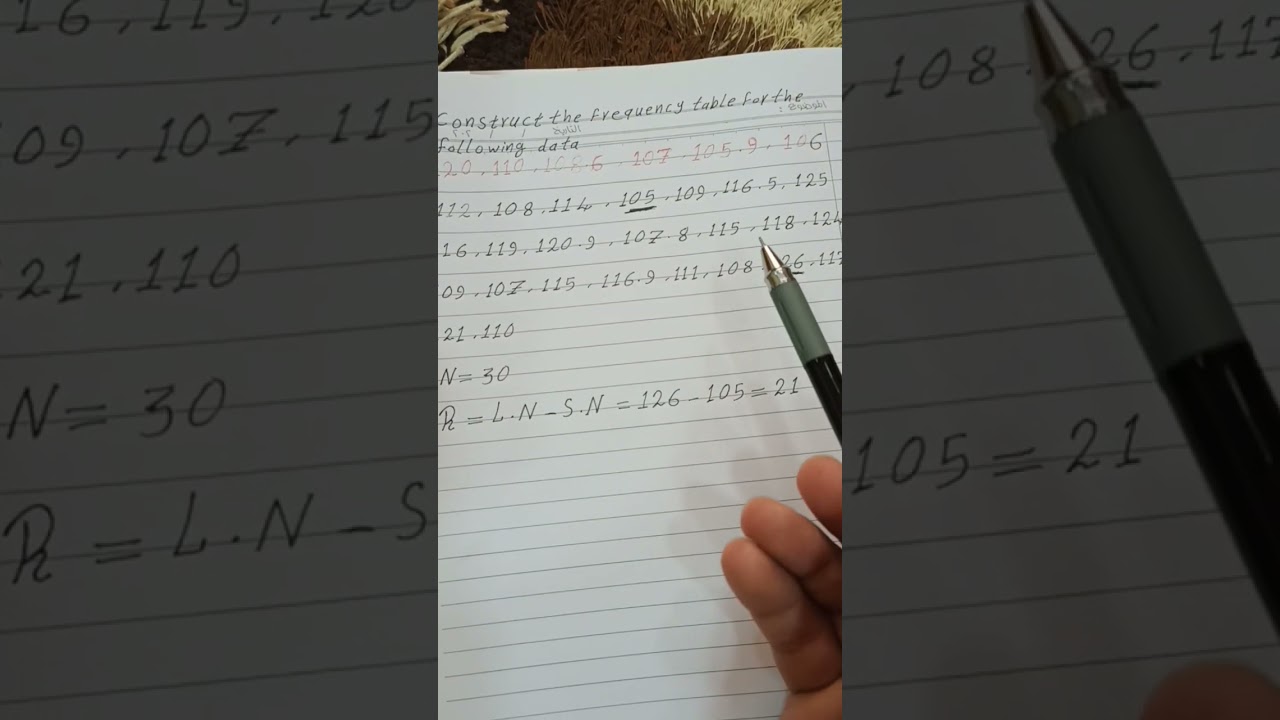 Construct the frequency table for the
following data
20 , 110 , 108.6 , 107 , 105.9 , 106
112 , 108 , 114 , 105 , 109 , 116.5 , 125
16 , 119 , 120.9 , 107.8 , 115 , 118 , 124
09 , 107 , 115 , 116.9 , 111 , 108 , 26 , 117
21 , 110
N = 30
R = L.N - S.N = 126 - 105 = 21